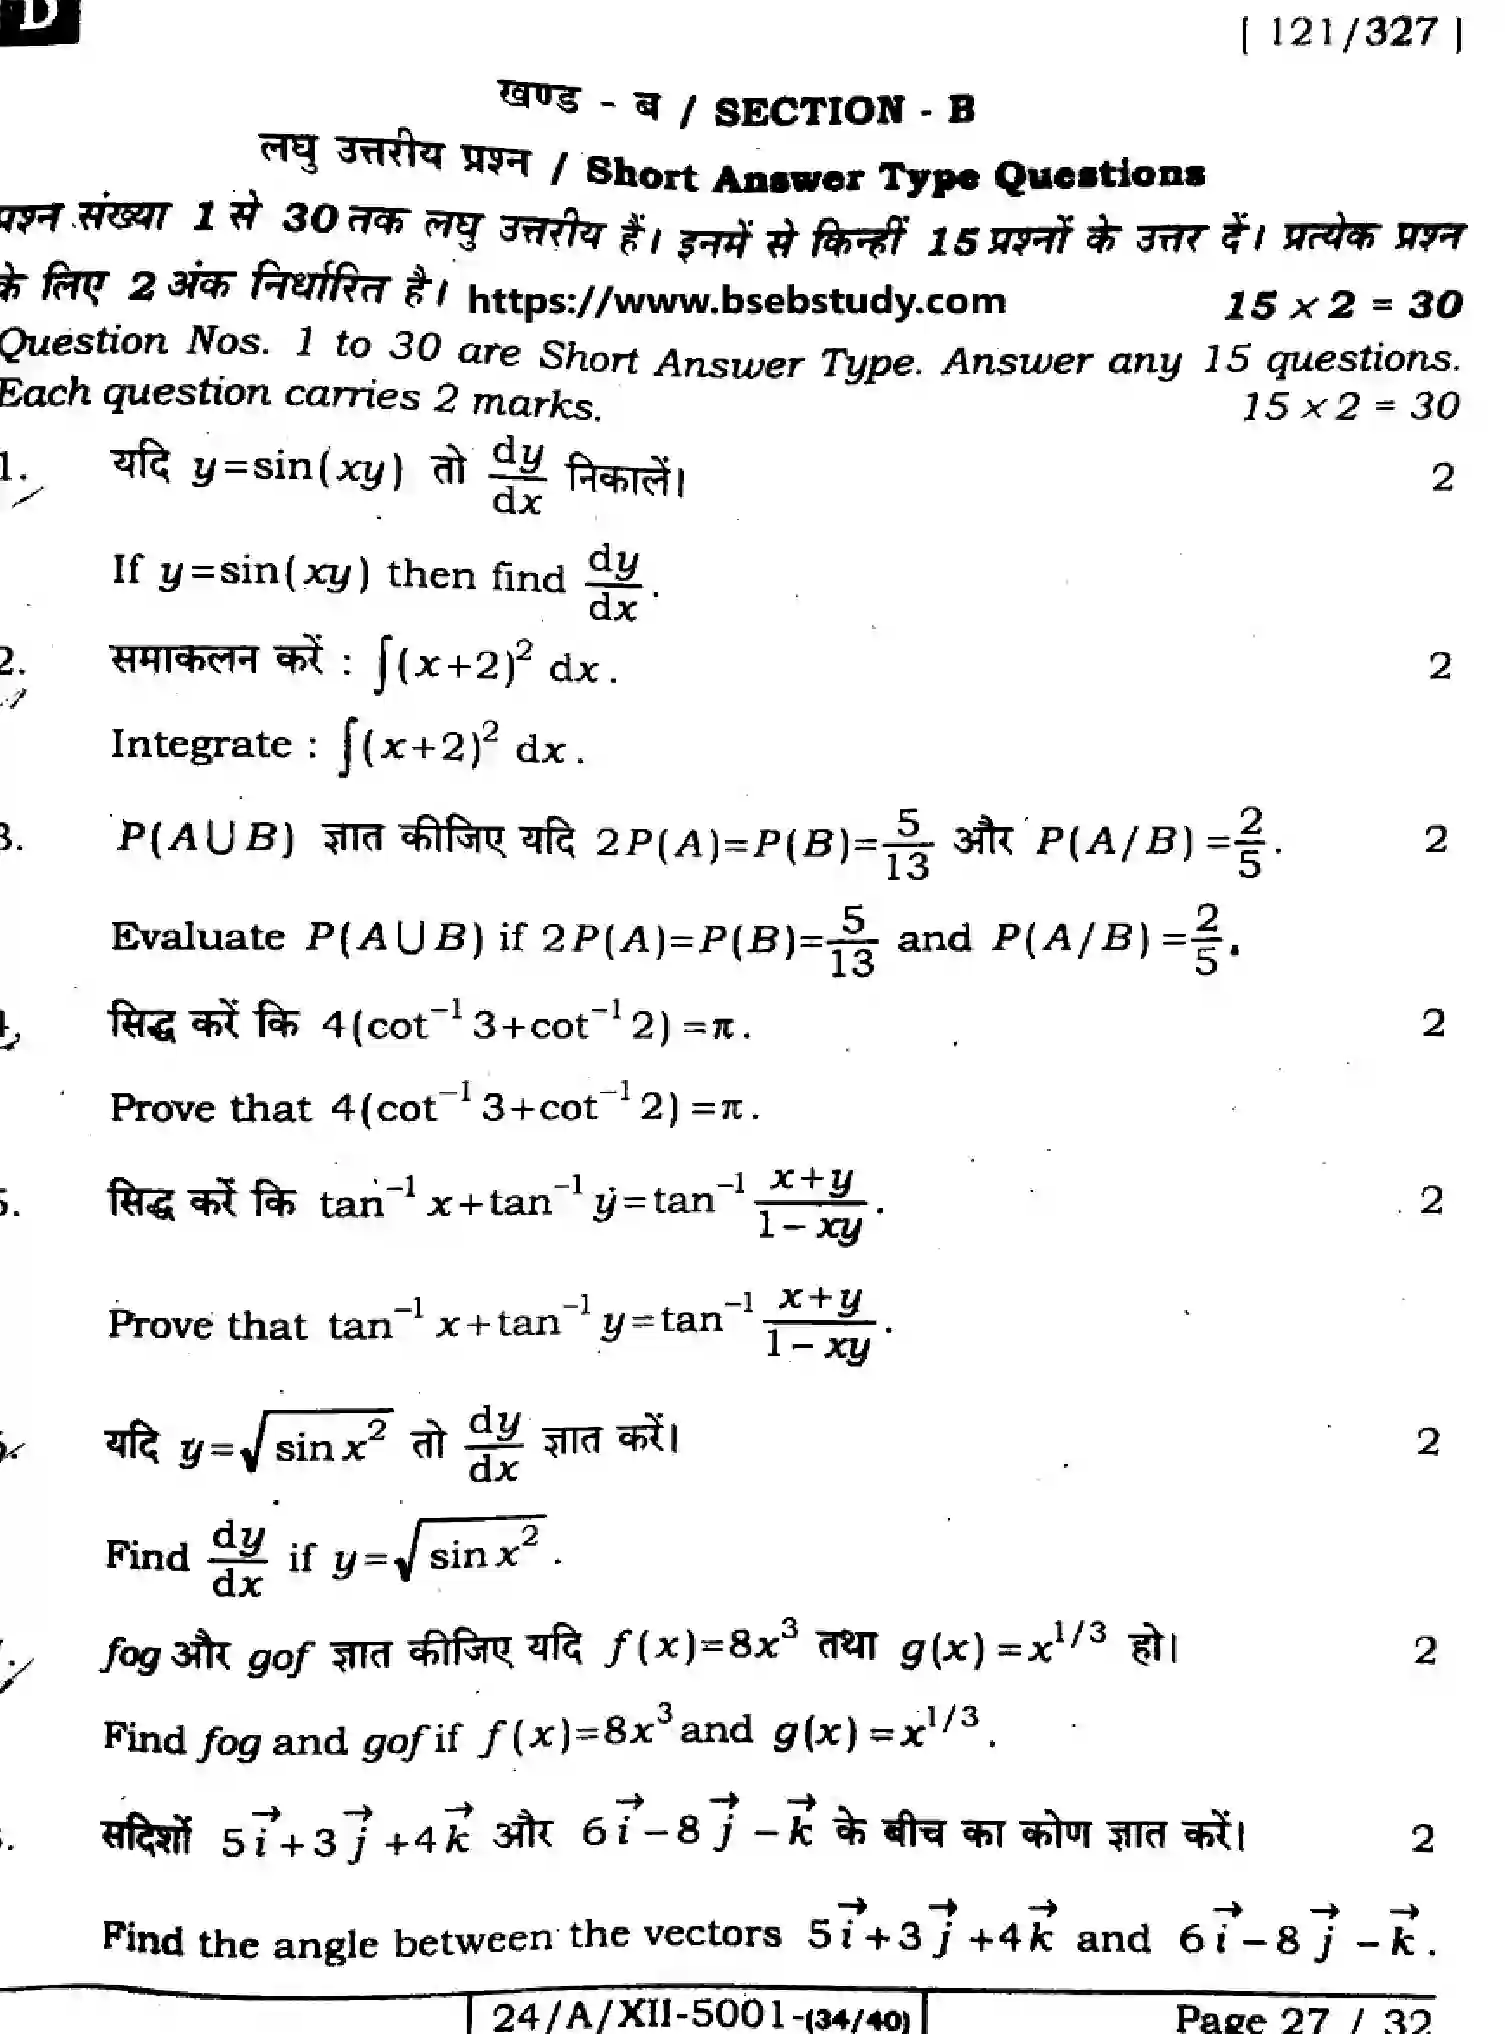 D
[ 121/327 ]
खण्ड - ब / SECTION - B
लघु उत्तरीय प्रश्न / Short Answer Type Questions
प्रश्न संख्या 1 से 30 तक लघु उत्तरीय हैं। इनमें से किन्हीं 15 प्रश्नों के उत्तर दें। प्रत्येक प्रश्न
के लिए 2 अंक निर्धारित है। https://www.bsebstudy.com 15 × 2 = 30
Question Nos. 1 to 30 are Short Answer Type. Answer any 15 questions.
Each question carries 2 marks. 15 × 2 = 30
1. यदि y=sin(xy) तो dy/dx निकालें। 2
If y=sin(xy) then find dy/dx.
2. समाकलन करें : ∫(x+2)² dx. 2
Integrate : ∫(x+2)² dx.
3. P(A∪B) ज्ञात कीजिए यदि 2P(A)=P(B)=5/13 और P(A/B)=2/5. 2
Evaluate P(A∪B) if 2P(A)=P(B)=5/13 and P(A/B)=2/5.
4. सिद्ध करें कि 4(cot⁻¹3+cot⁻¹2)=π. 2
Prove that 4(cot⁻¹3+cot⁻¹2)=π.
5. सिद्ध करें कि tan⁻¹x+tan⁻¹y=tan⁻¹ (x+y)/(1-xy). 2
Prove that tan⁻¹x+tan⁻¹y=tan⁻¹ (x+y)/(1-xy).
यदि y=√(sin x²) तो dy/dx ज्ञात करें। 2
Find dy/dx if y=√(sin x²).
fog और gof ज्ञात कीजिए यदि f(x)=8x³ तथा g(x)=x^1/3 हो। 2
Find fog and gof if f(x)=8x³ and g(x)=x^1/3.
सदिशों 5i⃗+3j⃗+4k⃗ और 6i⃗-8j⃗-k⃗ के बीच का कोण ज्ञात करें। 2
Find the angle between the vectors 5i⃗+3j⃗+4k⃗ and 6i⃗-8j⃗-k⃗.
24/A/XII-5001-(34/40)
Page 27 / 32